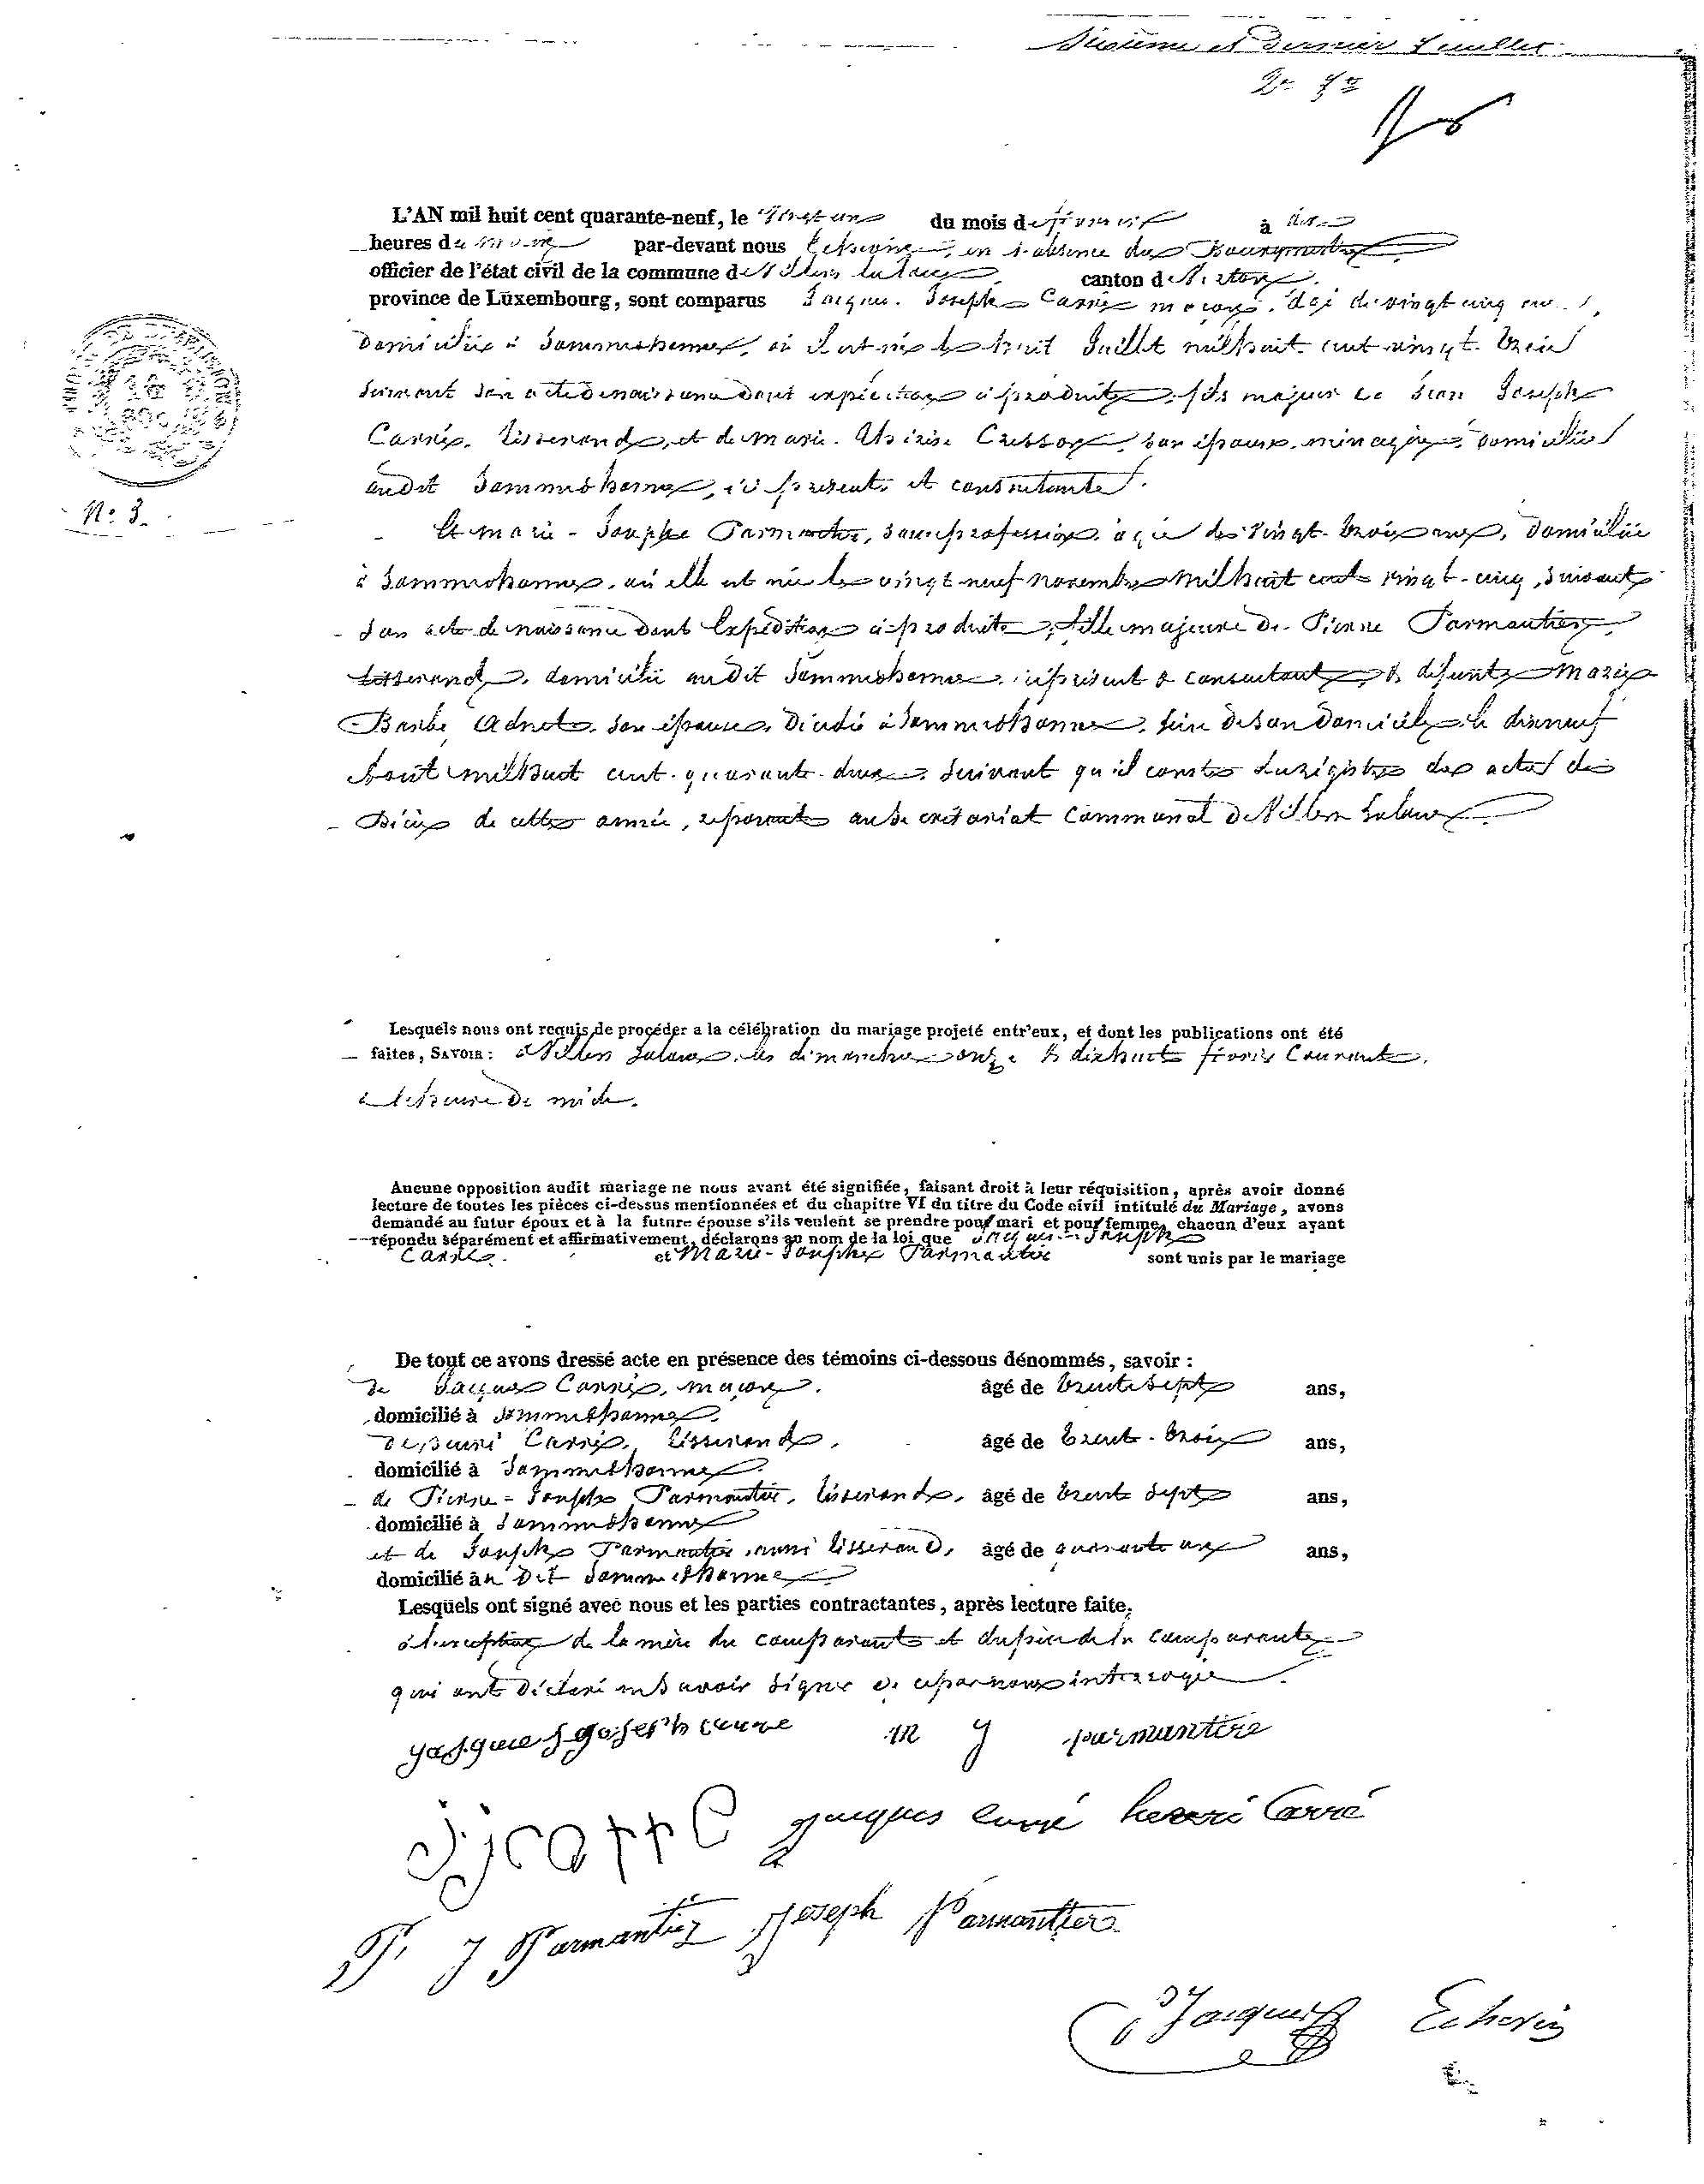 et dernier feuillet
L'AN mil huit cent quarante-neuf, le vingt un du mois de février à dix
heures du matin par-devant nous Echevin, en l'absence du Bourgmestre
officier de l'état civil de la commune de Villers laloue canton de Virton
province de Luxembourg, sont comparus Jacques Joseph Carré maçon, âgé de vingt cinq ans,
domicilié à Sommethonne, où il est né le huit Juillet mil huit cent vingt trois
suivant son acte de naissance dont expédition ci produite, fils majeur de Jean Joseph
Carré, tisserand, et de Marie Thérèse Cresson, son épouse, ménagère, domiciliés
audit Sommethonne, ici présents et consentants.
Et Marie-Josephe Parmantier, sans profession, âgée de vingt-trois ans, domiciliée
à Sommethonne, où elle est née le vingt neuf novembre mil huit cent vingt-cinq, suivant
son acte de naissance dont Expédition ci-produite, fille majeure de Pierre Parmantier
tisserand, domicilié audit Sommethonne, ici présent & consentant, & défunte Marie
Barbe Adnet, son épouse, décédée à Sommethonne, lieu de son domicile, le dixneuf
Août mil huit cent quarante-deux, suivant qu'il conste du régistre des actes de
Décès de cette année, reposant au secrétariat Communal de Villers Laloue
N° 3.
Lesquels nous ont requis de procéder a la célébration du mariage projeté entr'eux, et dont les publications ont été
faites, SAVOIR: à Villers Laloue, les dimanches onze & dixhuit février Courant,
à l'heure de midi.
Aucune opposition audit mariage ne nous ayant été signifiée, faisant droit à leur réquisition, après avoir donné
lecture de toutes les pièces ci-dessus mentionnées et du chapitre VI du titre du Code civil intitulé du Mariage, avons
demandé au futur époux et à la future épouse s'ils veulent se prendre pour mari et pour femme, chacun d'eux ayant
répondu séparément et affirmativement, déclarons au nom de la loi que Jacques-Joseph
Carré et Marie-Josephe Parmantier sont unis par le mariage
De tout ce avons dressé acte en présence des témoins ci-dessous dénommés, savoir :
de Jacques Carré, maçon, âgé de trente sept ans,
domicilié à Sommethonne
de henri Carré, tisserand, âgé de trente-trois ans,
domicilié à Sommethonne
de Pierre-Joseph Parmantier, tisserand, âgé de trente sept ans,
domicilié à Sommethonne
et de Joseph Parmantier, aussi tisserand, âgé de quarante un ans,
domicilié au dit Sommethonne
Lesquels ont signé avec nous et les parties contractantes, après lecture faite,
à l'exception de la mère du comparant et du père de la comparante
qui ont déclaré ne savoir signer de ce par nous interrogés
yasques goseph carre m j parmantire
J J carre Jacques carré henri Carré
P. J Parmantier Joseph Parmantier
Jacques Echevin